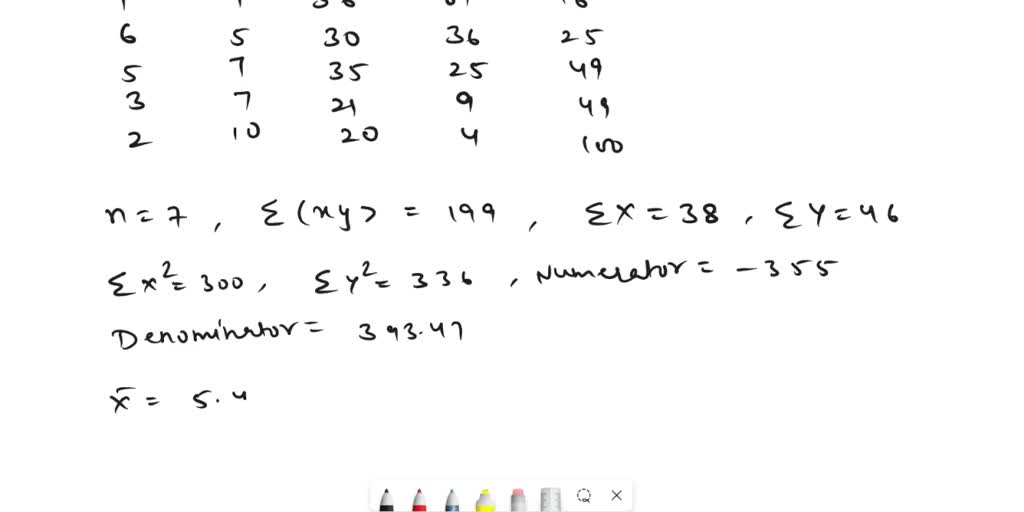 6 5 30 36 25
5 7 35 25 49
3 7 21 9 49
2 10 20 4 100
n = 7 , Σ(xy) = 199 , ΣX = 38 , ΣY = 46
Σx² = 300 , ΣY² = 336 , Numerator = -355
Denominator = 393.47
x̄ = 5.4